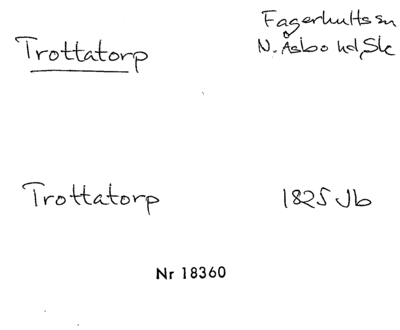 Trottatorp
Fagerhults sn
N. Åsbo hd, Sk
Trottatorp
1825 Jb
Nr 18360